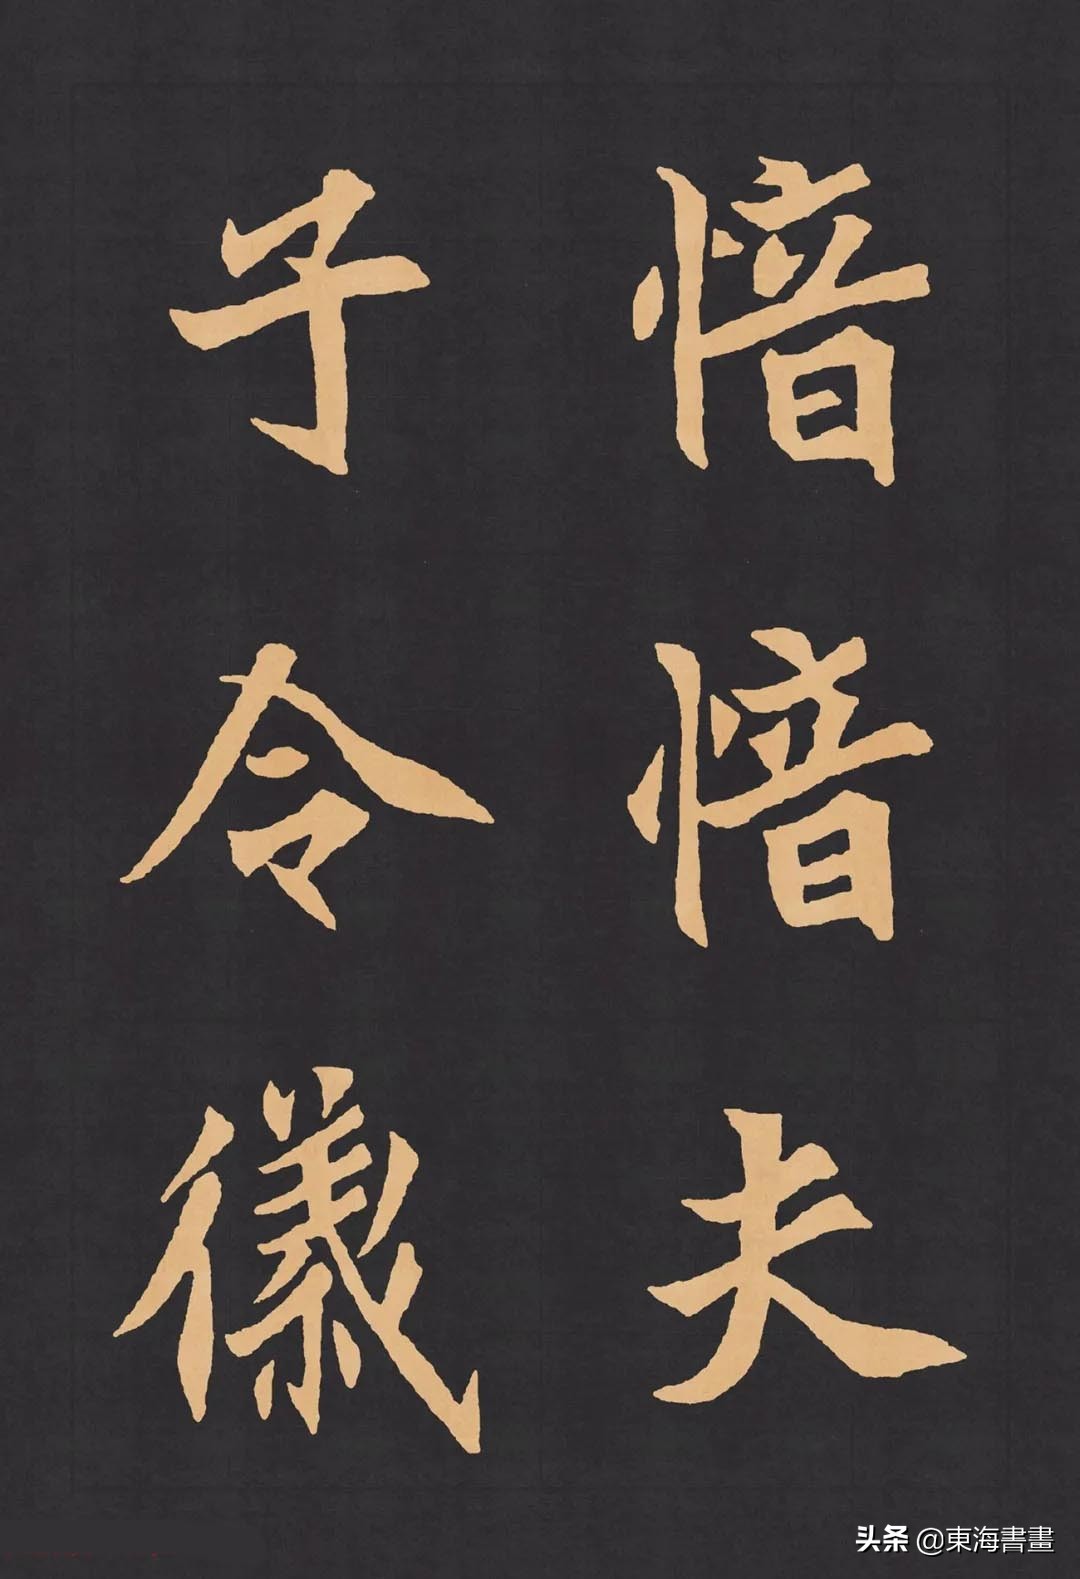 愔愔夫
子令儀
头条 @東海書畫